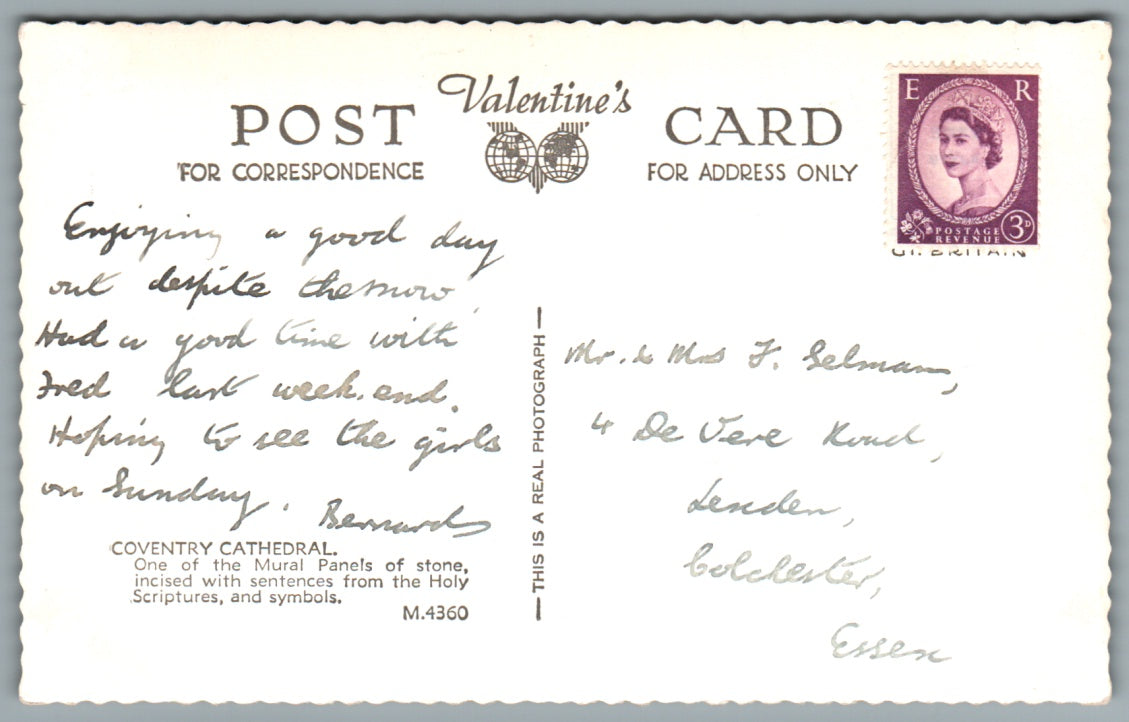 Valentine's
POST CARD
FOR CORRESPONDENCE
FOR ADDRESS ONLY
E R
POSTAGE
REVENUE
3D
GT. BRITAIN
Enjoying a good day
out despite the snow
Had a good time with
Fred last week.end.
Hoping to see the girls
on Sunday.
Bernard
COVENTRY CATHEDRAL.
One of the Mural Panels of stone,
incised with sentences from the Holy
Scriptures, and symbols.
M.4360
THIS IS A REAL PHOTOGRAPH
Mr. & Mrs F. Selman,
4 De Vere Road,
Lexden,
Colchester,
Essex